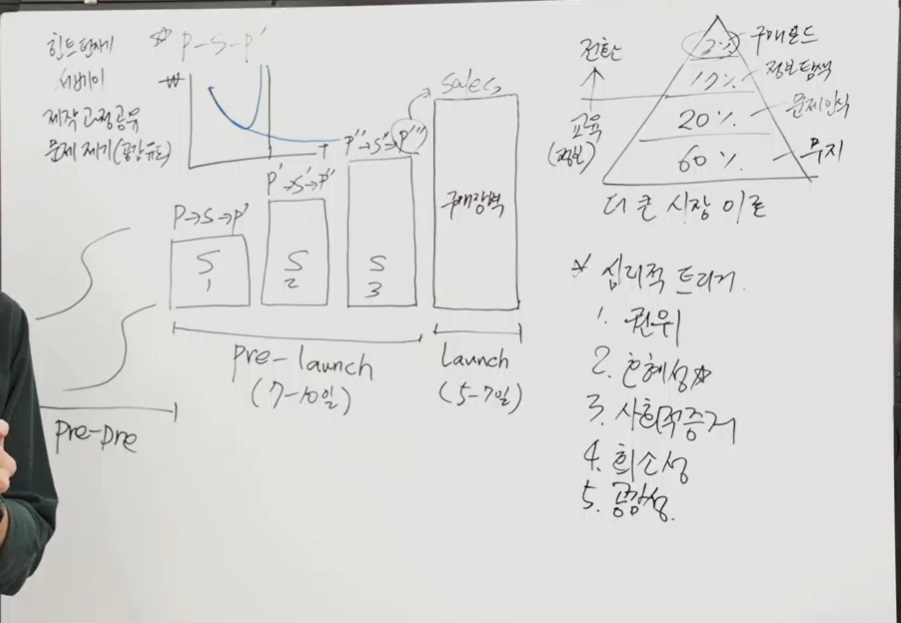 힌트던지기
서베이
제작과정공유
문제 제기(공감유도)
☆ P-S-P'
₩
T
P→S→P'
S
1
P'→S'→P''
S
2
P''→S''→P'''
S
3
sales
구매장벽
pre-pre
pre-launch
(7-10일)
Launch
(5-7일)
전환
↑
교육
(정보)
구매모드
17%
정보탐색
20%
문제인식
60%
무지
더 큰 시장 이론
☆ 심리적 트리거
1. 권위
2. 호혜성☆
3. 사회적증거
4. 희소성
5. 공감성.